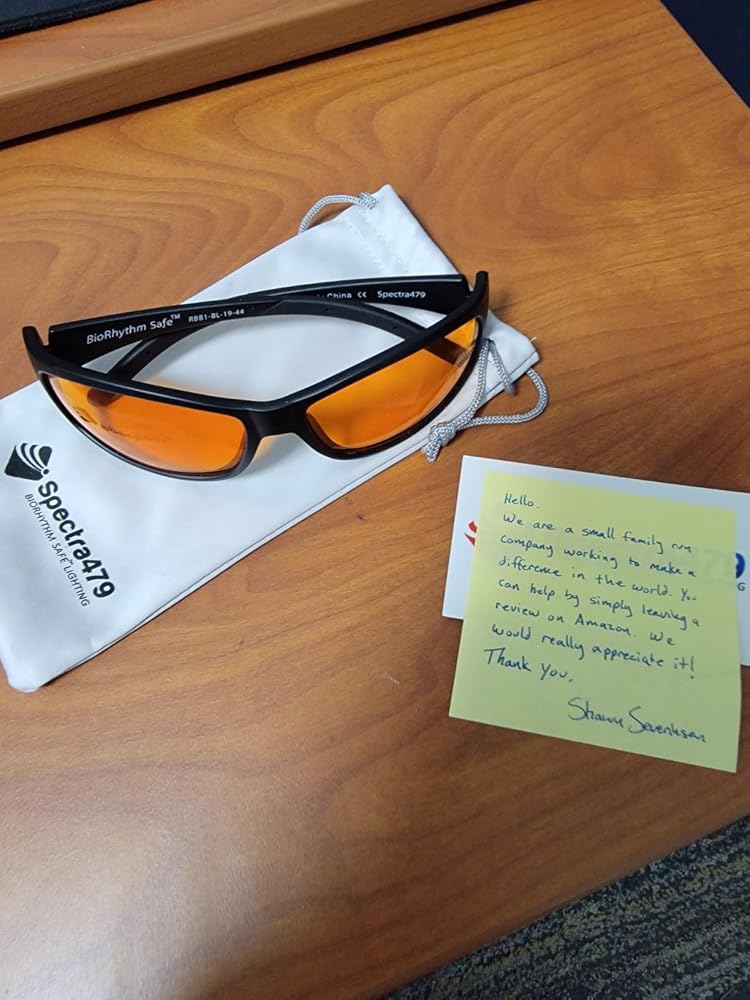 China CE Spectra479
BioRhythm Safe™ RBB1-BL-19-44
Spectra479
BIORHYTHM SAFE™ LIGHTING
Hello.
We are a small family run
company working to make a
difference in the world. You
can help by simply leaving a
review on Amazon. We
would really appreciate it!
Thank you,
Shawn
79
NG